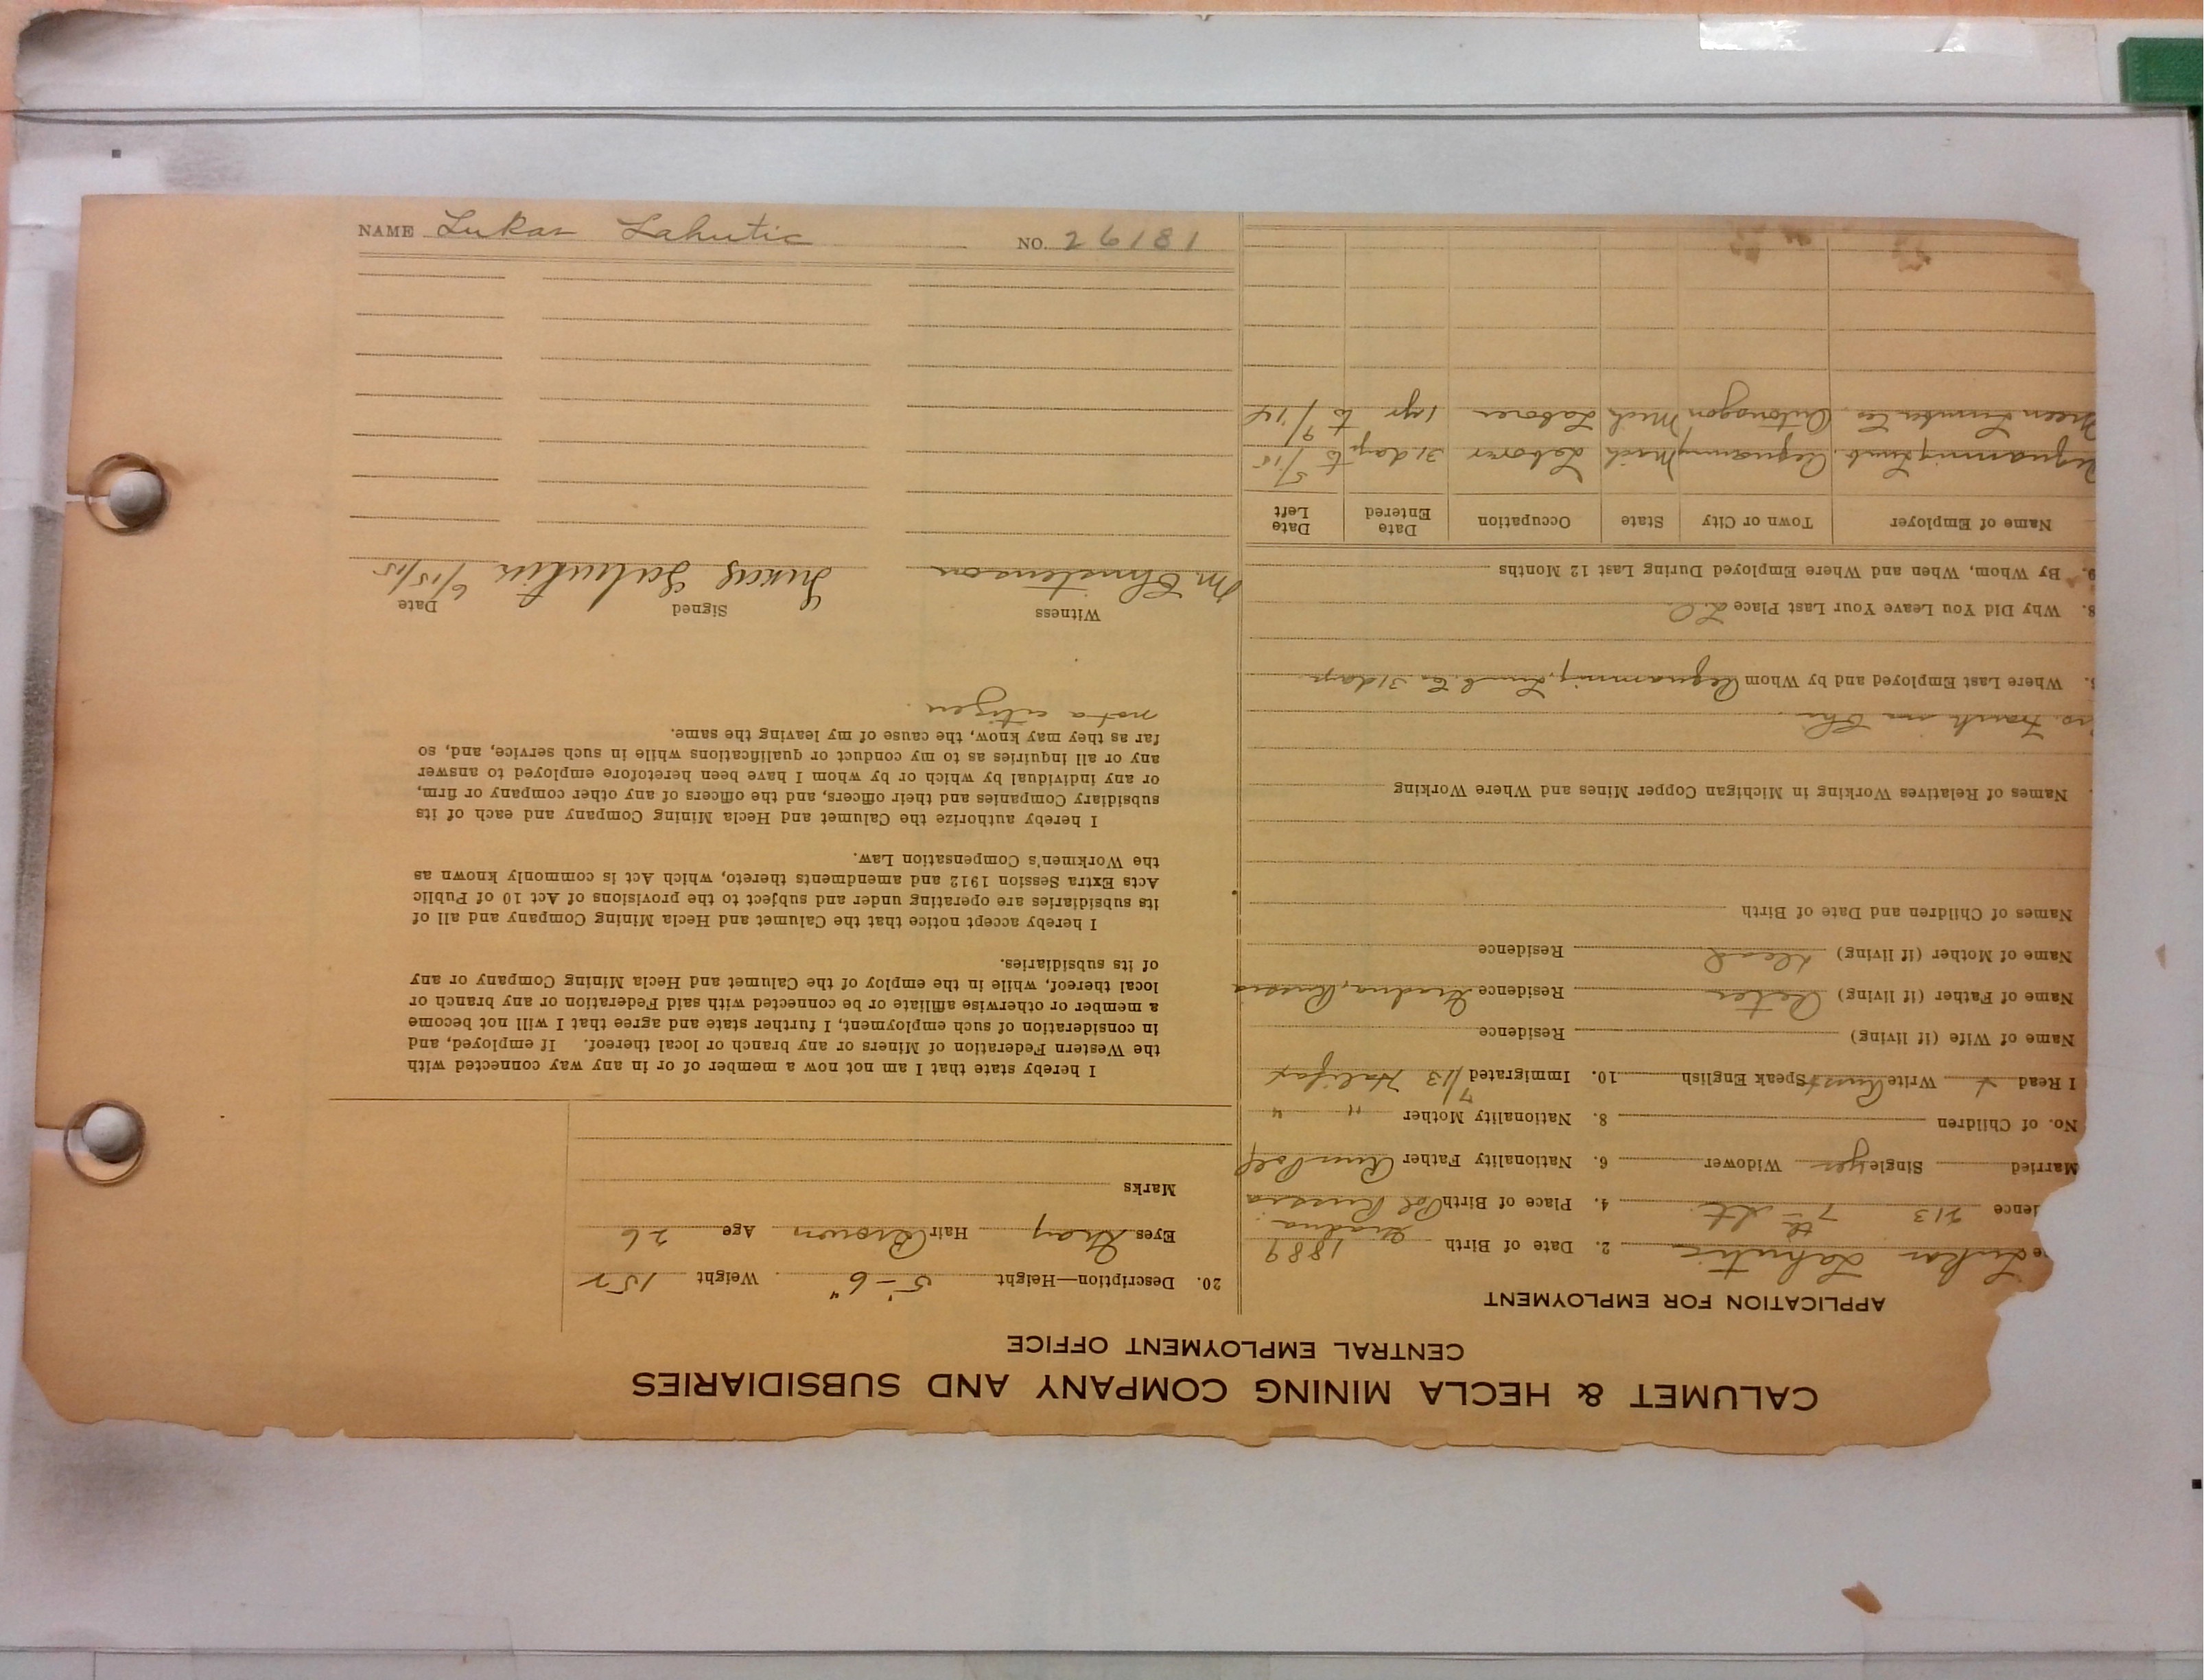 CALUMET & HECLA MINING COMPANY AND SUBSIDIARIES
CENTRAL EMPLOYMENT OFFICE
APPLICATION FOR EMPLOYMENT
e Lukas Lahutic 2. Date of Birth 1889
dence 213 7th St. 4. Place of Birth Gradna Pol Russia
Married Single yes Widower 6. Nationality Father Russ Pole
No. of Children 8. Nationality Mother " "
I Read x Write Russ Speak English 10. Immigrated 7/13 Halifax
Name of Wife (if living) Residence
Name of Father (if living) Peter Residence Gradna, Russia
Name of Mother (if living) dead Residence
Names of Children and Date of Birth
Names of Relatives Working in Michigan Copper Mines and Where Working
Where Last Employed and by Whom Pequamming Lumb. Co. 31 days
8. Why Did You Leave Your Last Place
9. By Whom, When and Where Employed During Last 12 Months
Name of Employer Town or City State Occupation Date Entered Date Left
equamming Lumb. Pequamming Mich Laborer 31 days to 5/15
Green Lumber Co. Ontonagon Mich Laborer 1 yr to 9/14
20. Description—Height 5'-6" Weight 152
Eyes Gray Hair Brown Age 26
Marks
I hereby state that I am not now a member of or in any way connected with
the Western Federation of Miners or any branch or local thereof. If employed, and
in consideration of such employment, I further state and agree that I will not become
a member or otherwise affiliate or be connected with said Federation or any branch or
local thereof, while in the employ of the Calumet and Hecla Mining Company or any
of its subsidiaries.
I hereby accept notice that the Calumet and Hecla Mining Company and all of
its subsidiaries are operating under and subject to the provisions of Act 10 of Public
Acts Extra Session 1912 and amendments thereto, which Act is commonly known as
the Workmen's Compensation Law.
I hereby authorize the Calumet and Hecla Mining Company and each of its
subsidiary Companies and their officers, and the officers of any other company or firm,
or any individual by which or by whom I have been heretofore employed to answer
any or all inquiries as to my conduct or qualifications while in such service, and, so
far as they may know, the cause of my leaving the same.
not a citizen
Witness Signed Date
M Christenson Lukas 6/15/15
NAME Lukas Lahutic NO. 26181